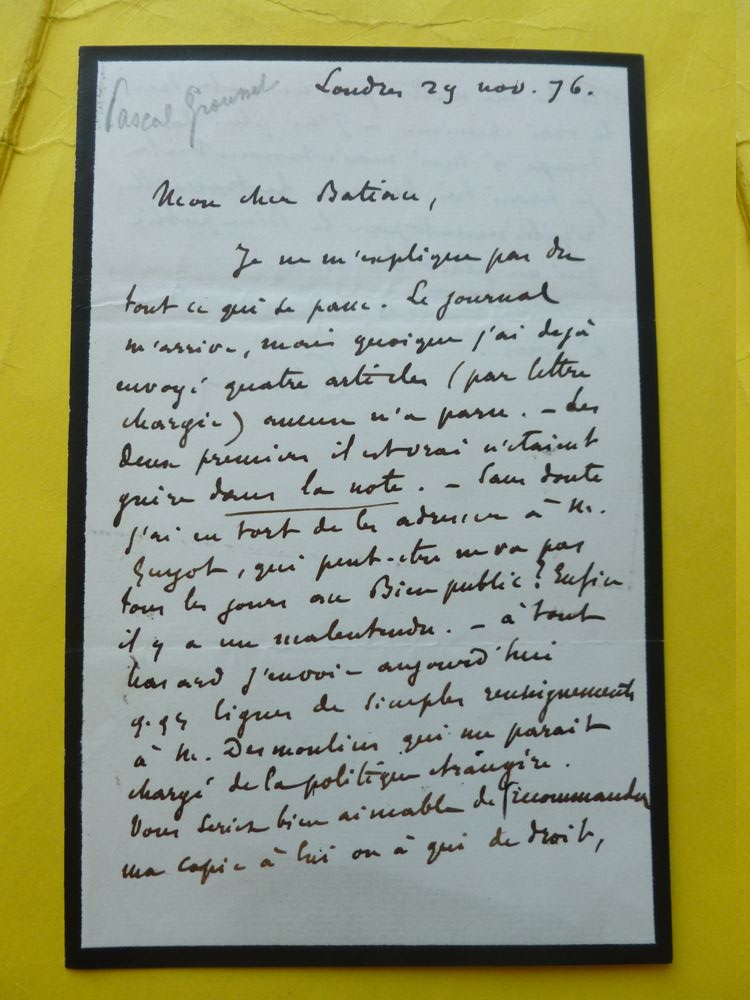 Pascal Grousset
Londres 29 nov. 76.
Mon cher
Je ne m'explique pas du
tout ce qui se passe. Le journal
m'arrive, mais quoique j'ai dejà
envoyé quatre articles (par lettre
chargée) aucun n'a paru. – Les
deux premiers il est vrai n'étaient
guère dans la note. – Sans doute
j'ai eu tort de les adresser à M.
Guyot, qui peut-être ne va pas
tous les jours au Bien public? Enfin
il y a un malentendu. – à tout
hasard j'envoie aujourd'hui
q.qes lignes de simples renseignements
à M. Desmoulins qui me parait
chargé de la politique étrangère.
Vous seriez bien aimable de recommander
ma copie à lui ou à qui de droit,